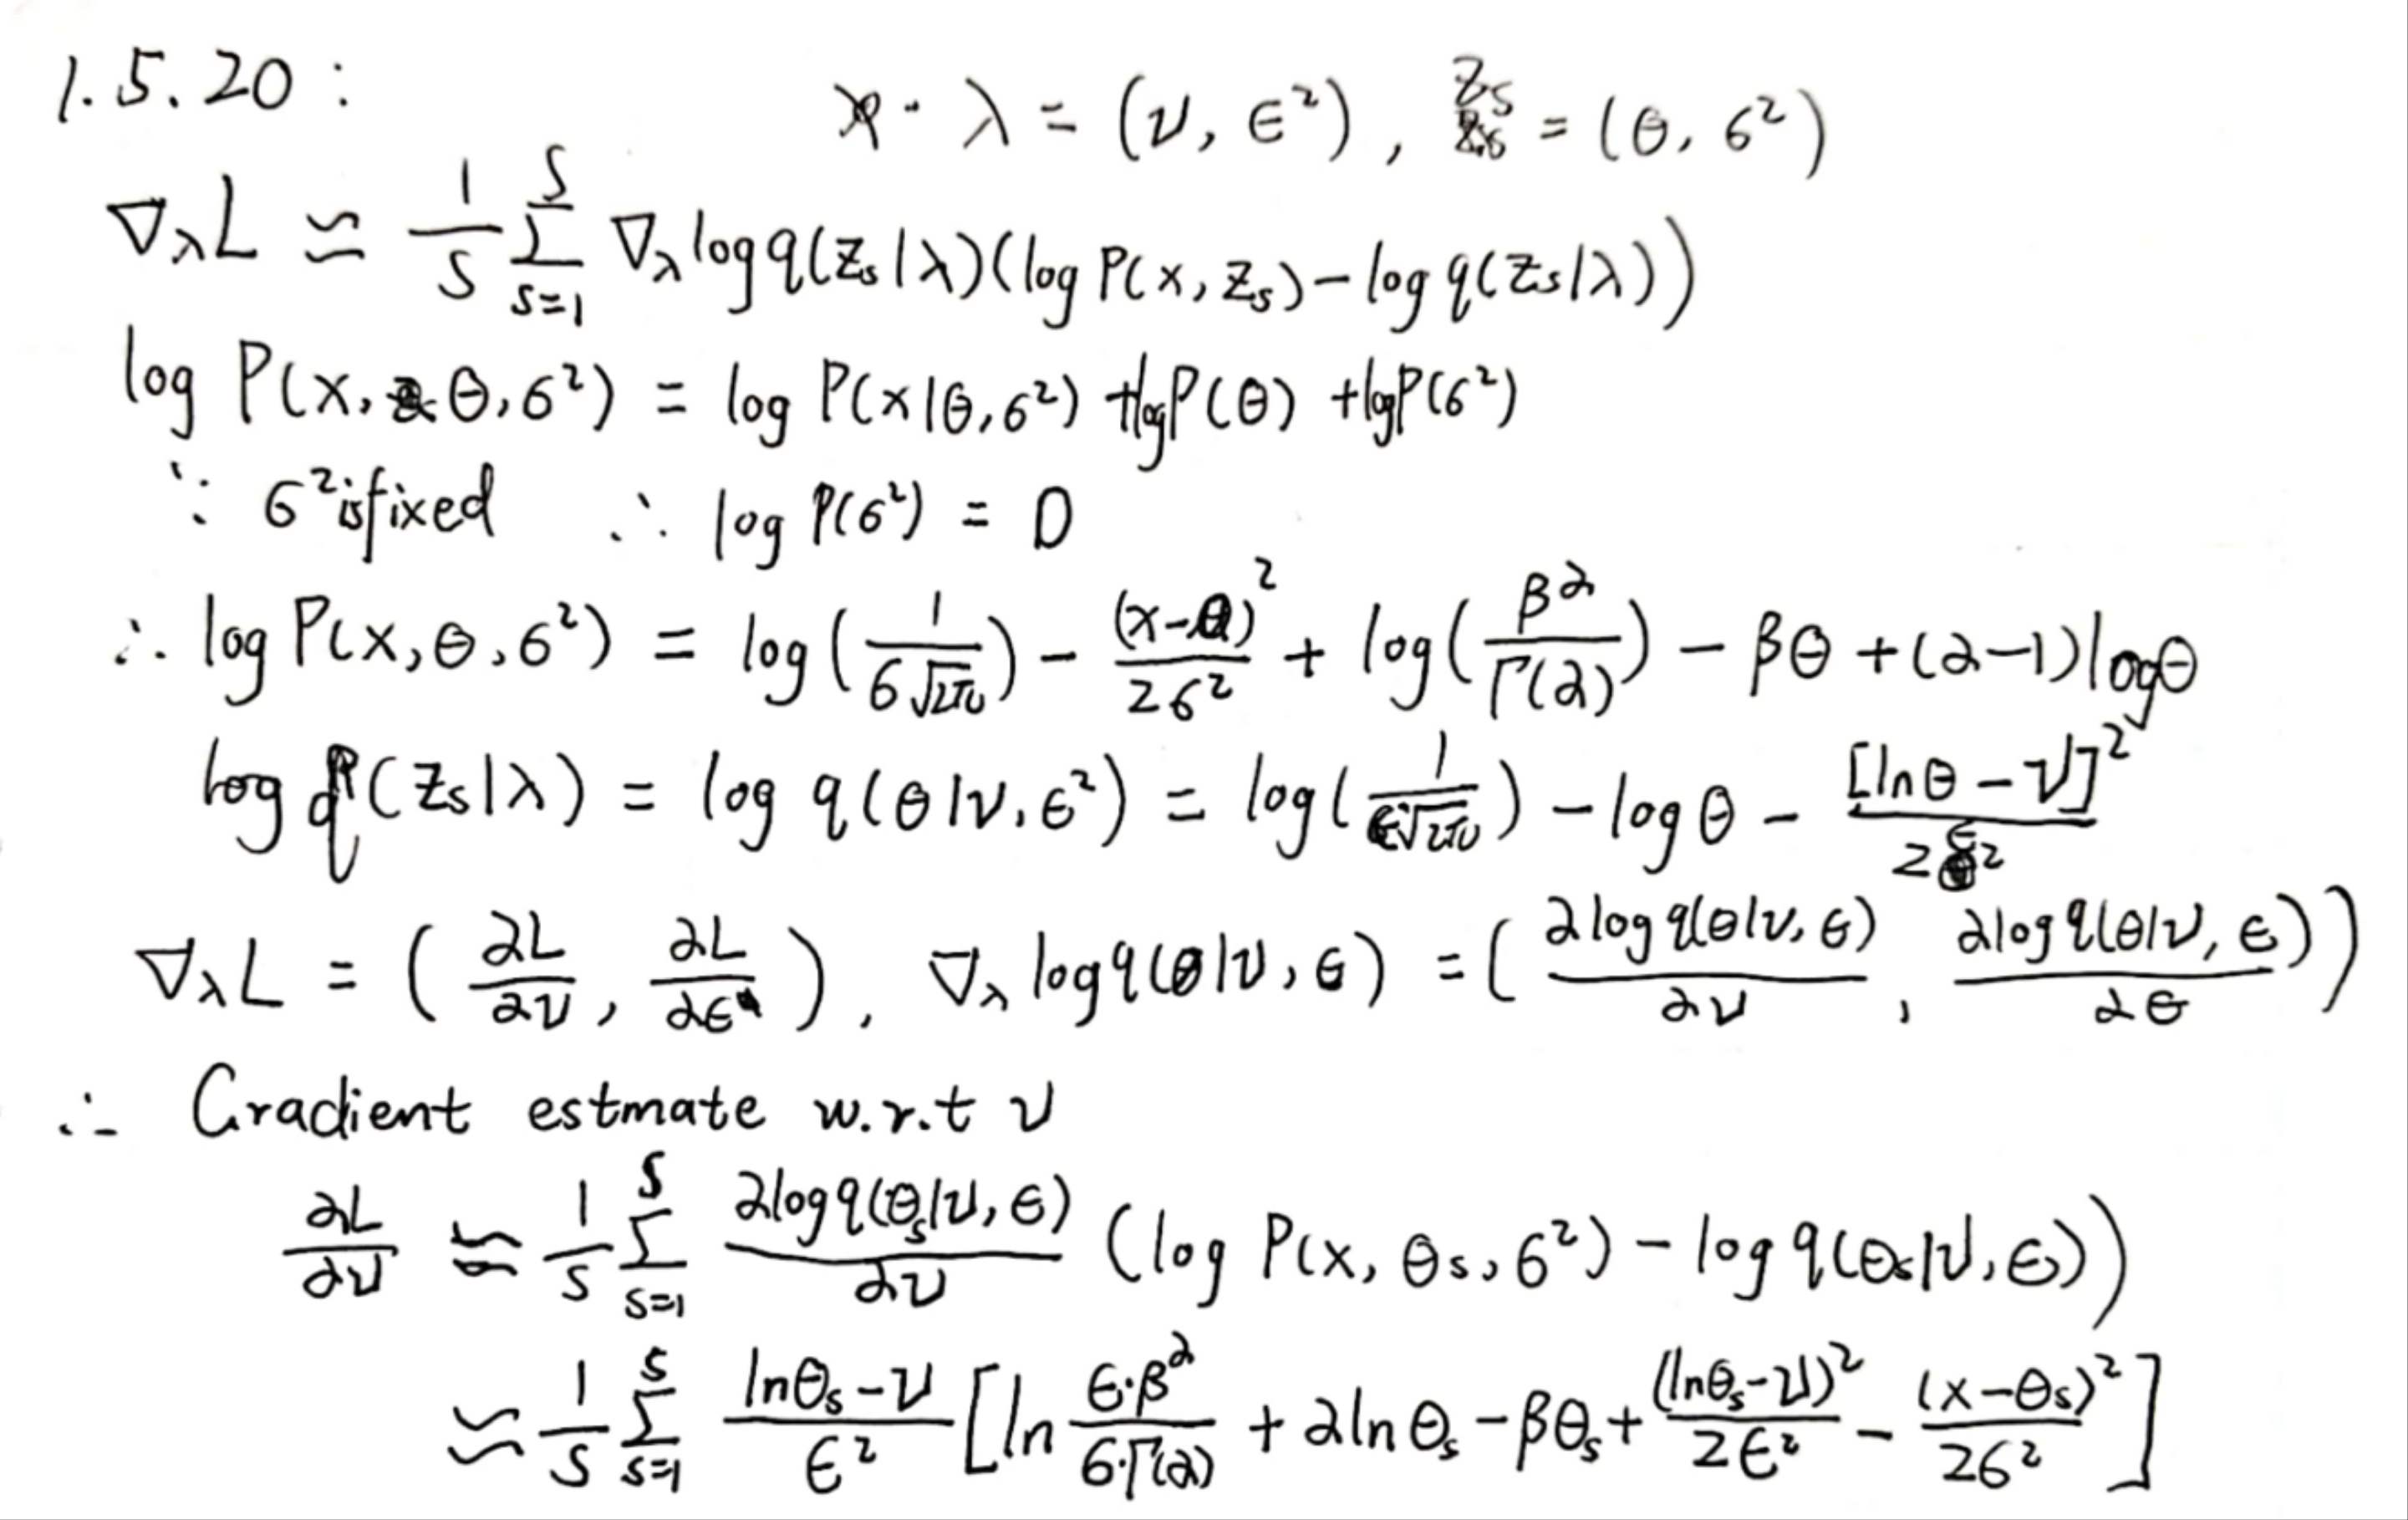 1.5.20 :
λ = (ν, ϵ²), Zs = (θ, 6²)
∇λL ≌ 1/S Σ_{s=1}^{S} ∇λ log q(Zs|λ)(log P(x, Zs) - log q(Zs|λ))
log P(x, θ, 6²) = log P(x|θ, 6²) + log P(θ) + lg P(6²)
∵ 6² is fixed ∴ log P(6²) = 0
∴ log P(x, θ, 6²) = log(1/(6√2π)) - (x-θ)²/(26²) + log(β^α/Γ(α)) - βθ + (α-1)logθ
log q(Zs|λ) = log q(θ|ν, ϵ²) = log(1/(ϵ√2π)) - log θ - [lnθ - ν]²/(2ϵ²)
∇λL = (∂L/∂ν, ∂L/∂ϵ), ∇λ log q(θ|ν, ϵ) = (∂log q(θ|ν, ϵ)/∂ν, ∂log q(θ|ν, ϵ)/∂ϵ)
∴ Gradient estmate w.r.t ν
∂L/∂ν ≌ 1/S Σ_{s=1}^{S} ∂log q(θs|ν, ϵ)/∂ν (log P(x, θs, 6²) - log q(θs|ν, ϵ))
≌ 1/S Σ_{s=1}^{S} (lnθs - ν)/ϵ² [ln (ϵ·β^α)/(6·Γ(α)) + αlnθs - βθs + (lnθs-ν)²/(2ϵ²) - (x-θs)²/(26²)]